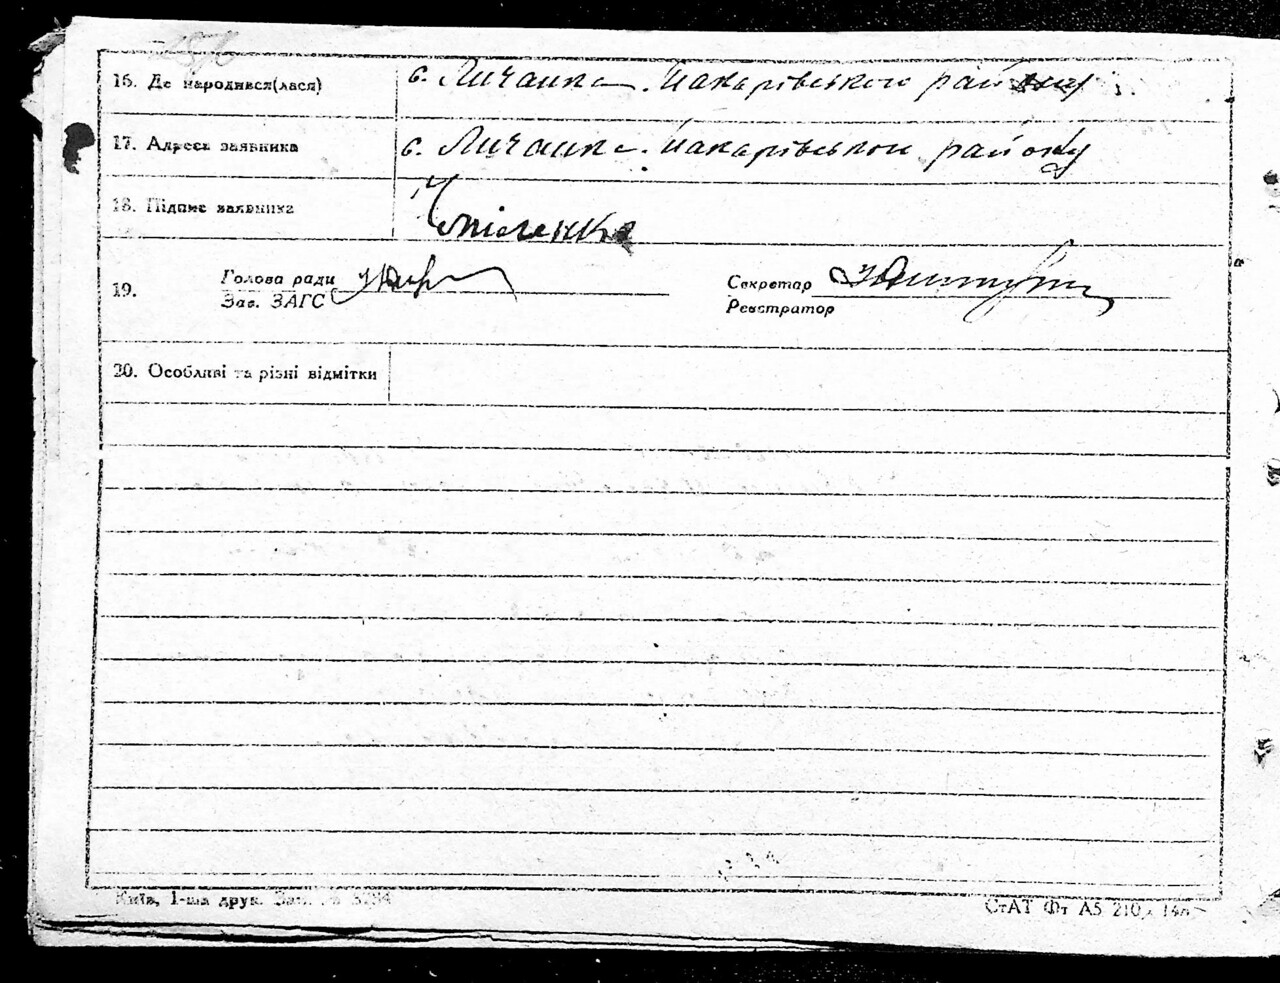 16. Де народився(лася) с. Личанка Макарівського району
17. Адреса заявника с. Личанка Макарівського району
18. Підпис заявника
19. Голова ради Секретар
Зав. ЗАГС Реєстратор
20. Особливі та різні відмітки
Київ, 1-ша друк. Зам. 3284 СтАТ Фт А5 210 х 148